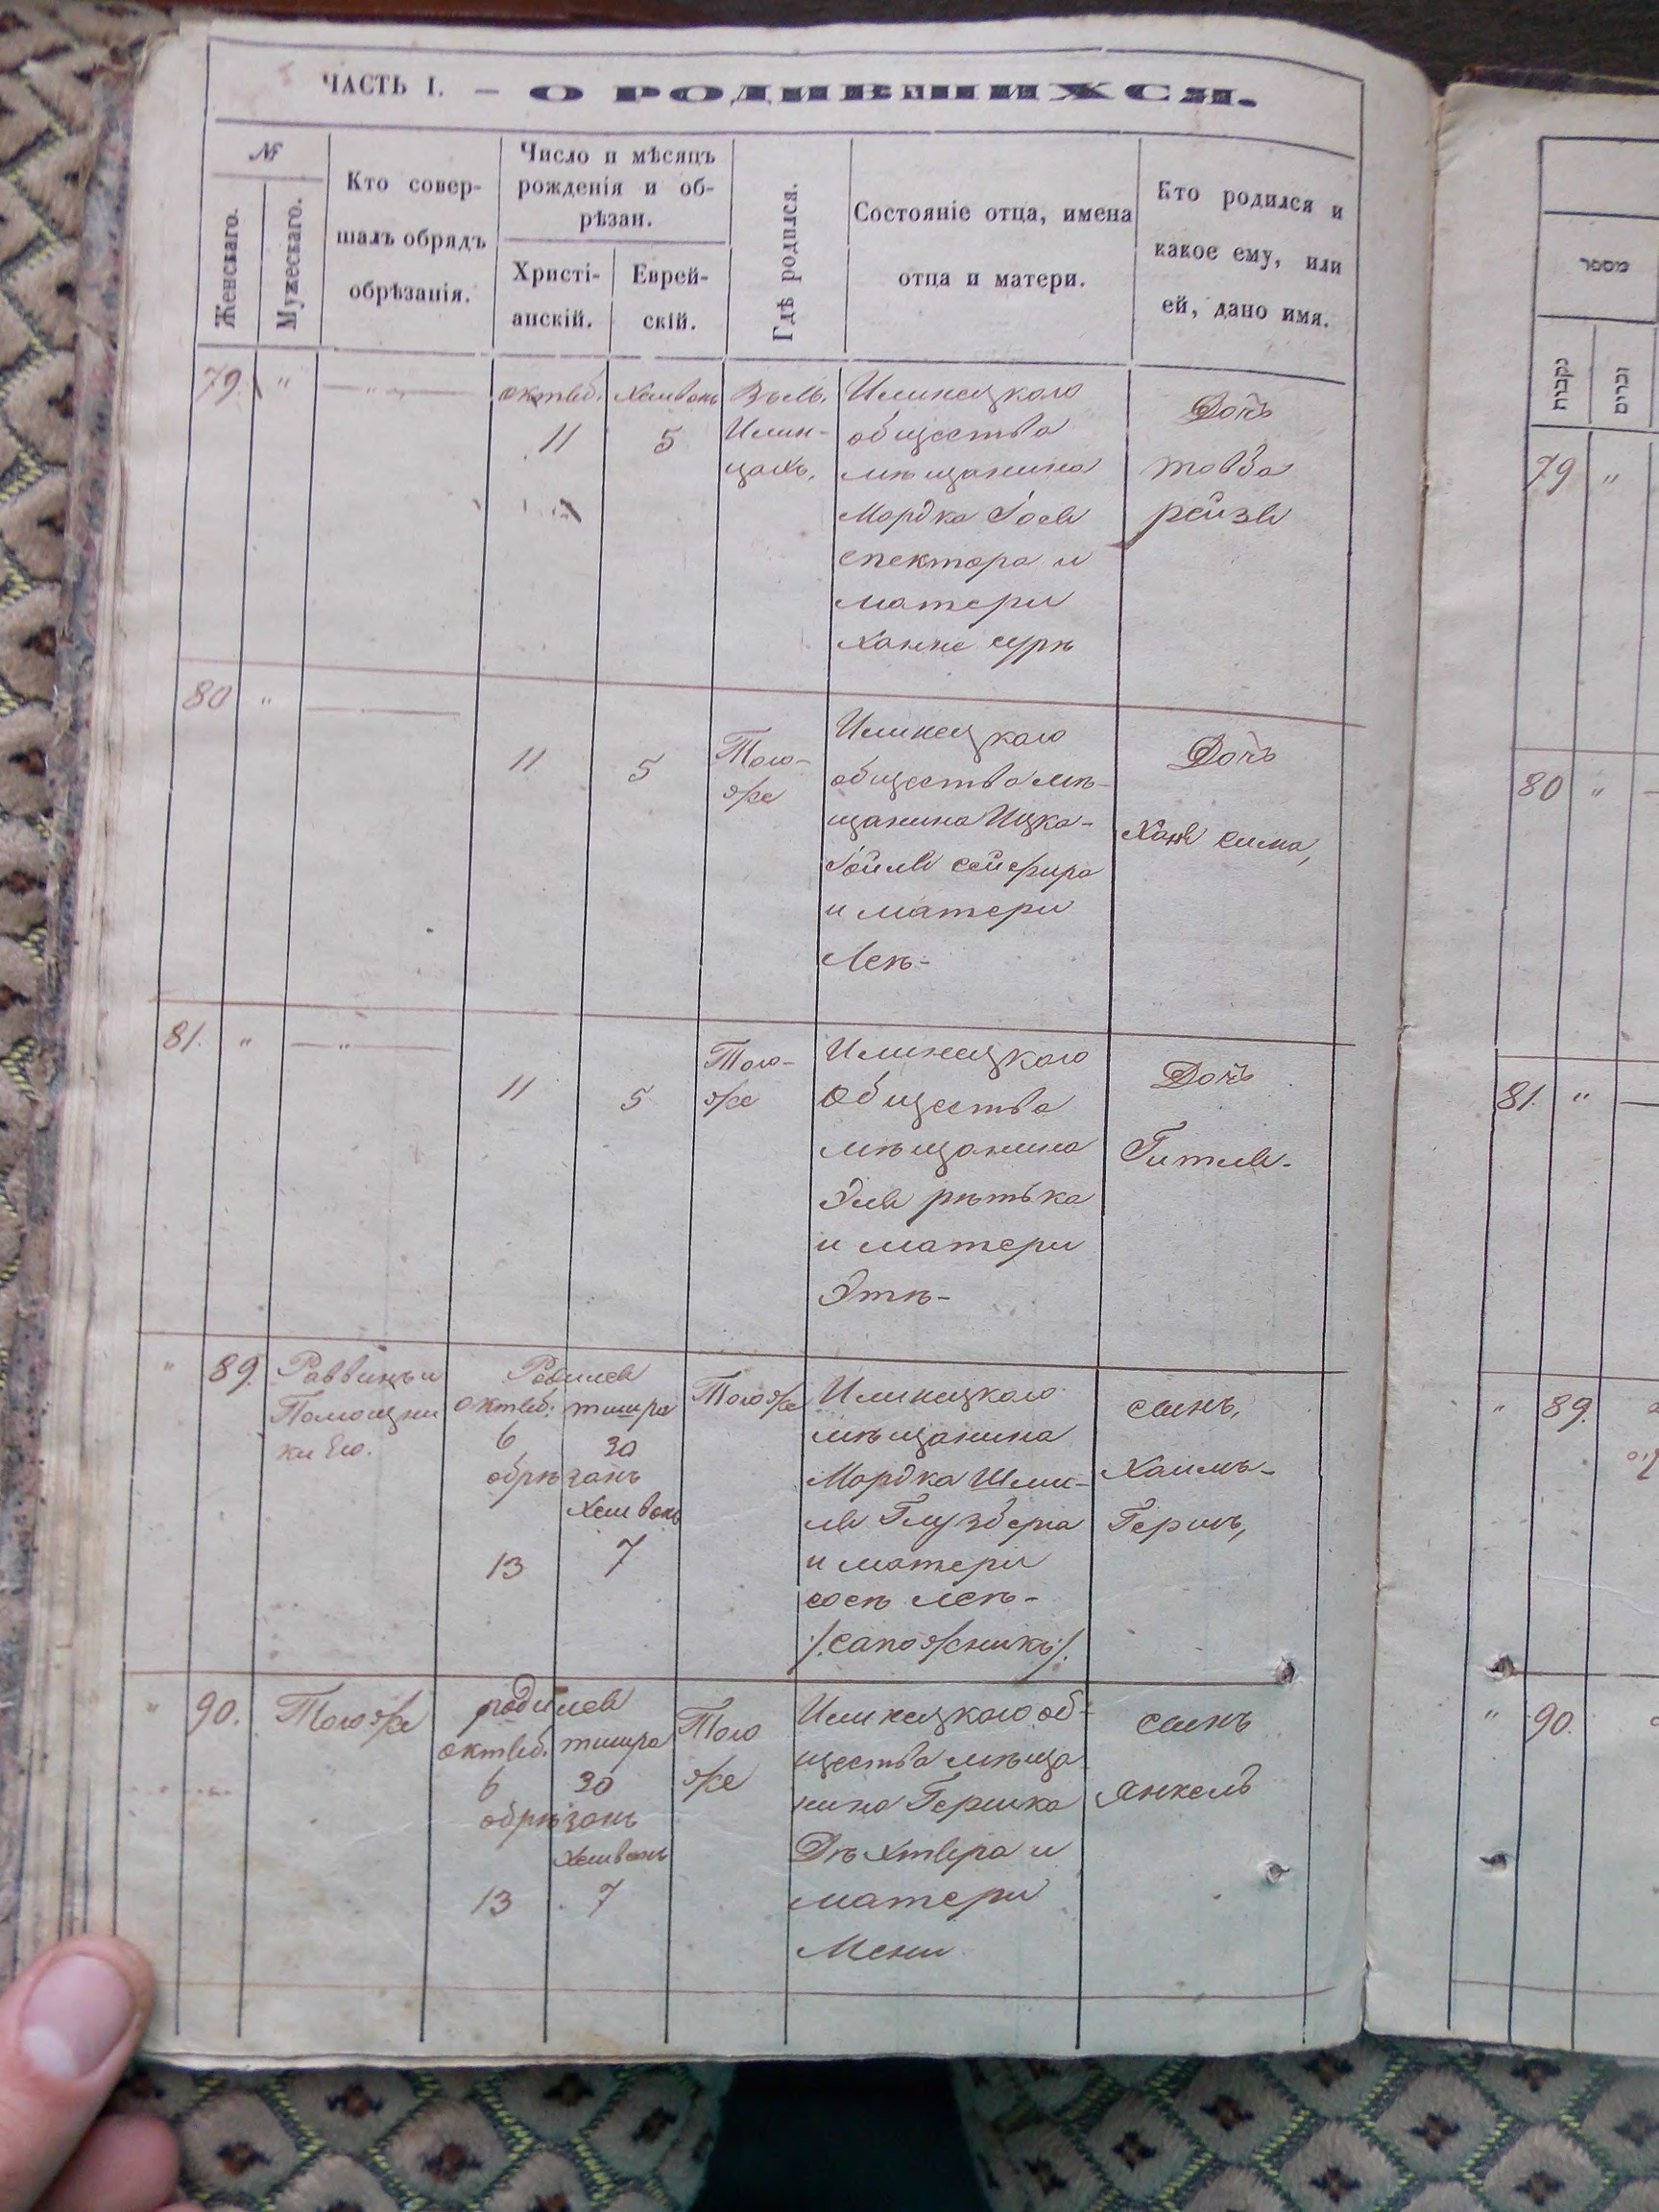 ЧАСТЬ I. — О РОДИВШИХСЯ.
№
Женскаго.
Мужескаго.
Кто совер-
шалъ обрядъ
обрѣзанія.
Число и мѣсяцъ
рожденія и об-
рѣзан.
Христі-
анскій.
Еврей-
скій.
Гдѣ родился.
Состояніе отца, имена
отца и матери.
Кто родился и
какое ему, или
ей, дано имя.
79. " — " —
октяб. 11
Хешвонъ 5
Въ м.
Илин-
цахъ.
Илинецкого
общества
мѣщанина
Мордка Іося
спектора и
матери
Ханне сурѣ
Дочь
товба
рейзя
80 " —
11
5
Того-
же
Илинецкого
общества мѣ-
щанина Ицка-
Іойля сейфира
и матери
Леѣ-
Дочь
Ханя сима,
81. " — " —
11
5
Того-
же
Илинецкого
Общества
мѣщанина
Эля рѣтька
и матери
Этѣ-
Дочь
Гитля-
" 89.
Раввинъ и
Помощни
ки Его.
Родился
октяб. тишра
6 30
обрѣзанъ
Хешвонъ
13 7
Того же
Илинецкого
мѣщанина
Мордка Шми-
ля Глузберга
и матери
сосѣ леѣ-
/.сапожникъ/.
сынъ,
Хаимъ-
Гершъ,
" 90.
Того же
родился
октяб. тишра
6 30
обрѣзанъ
Хешвонъ
13 7
Того
же
Илинецкого об-
щества мѣща
нина Гершка
Дѣхтяра и
матери
Мени
сынъ
Янкель
מספר
נקבות
זכרים
79 "
80 " —
81. " —
" 89.
" 90.